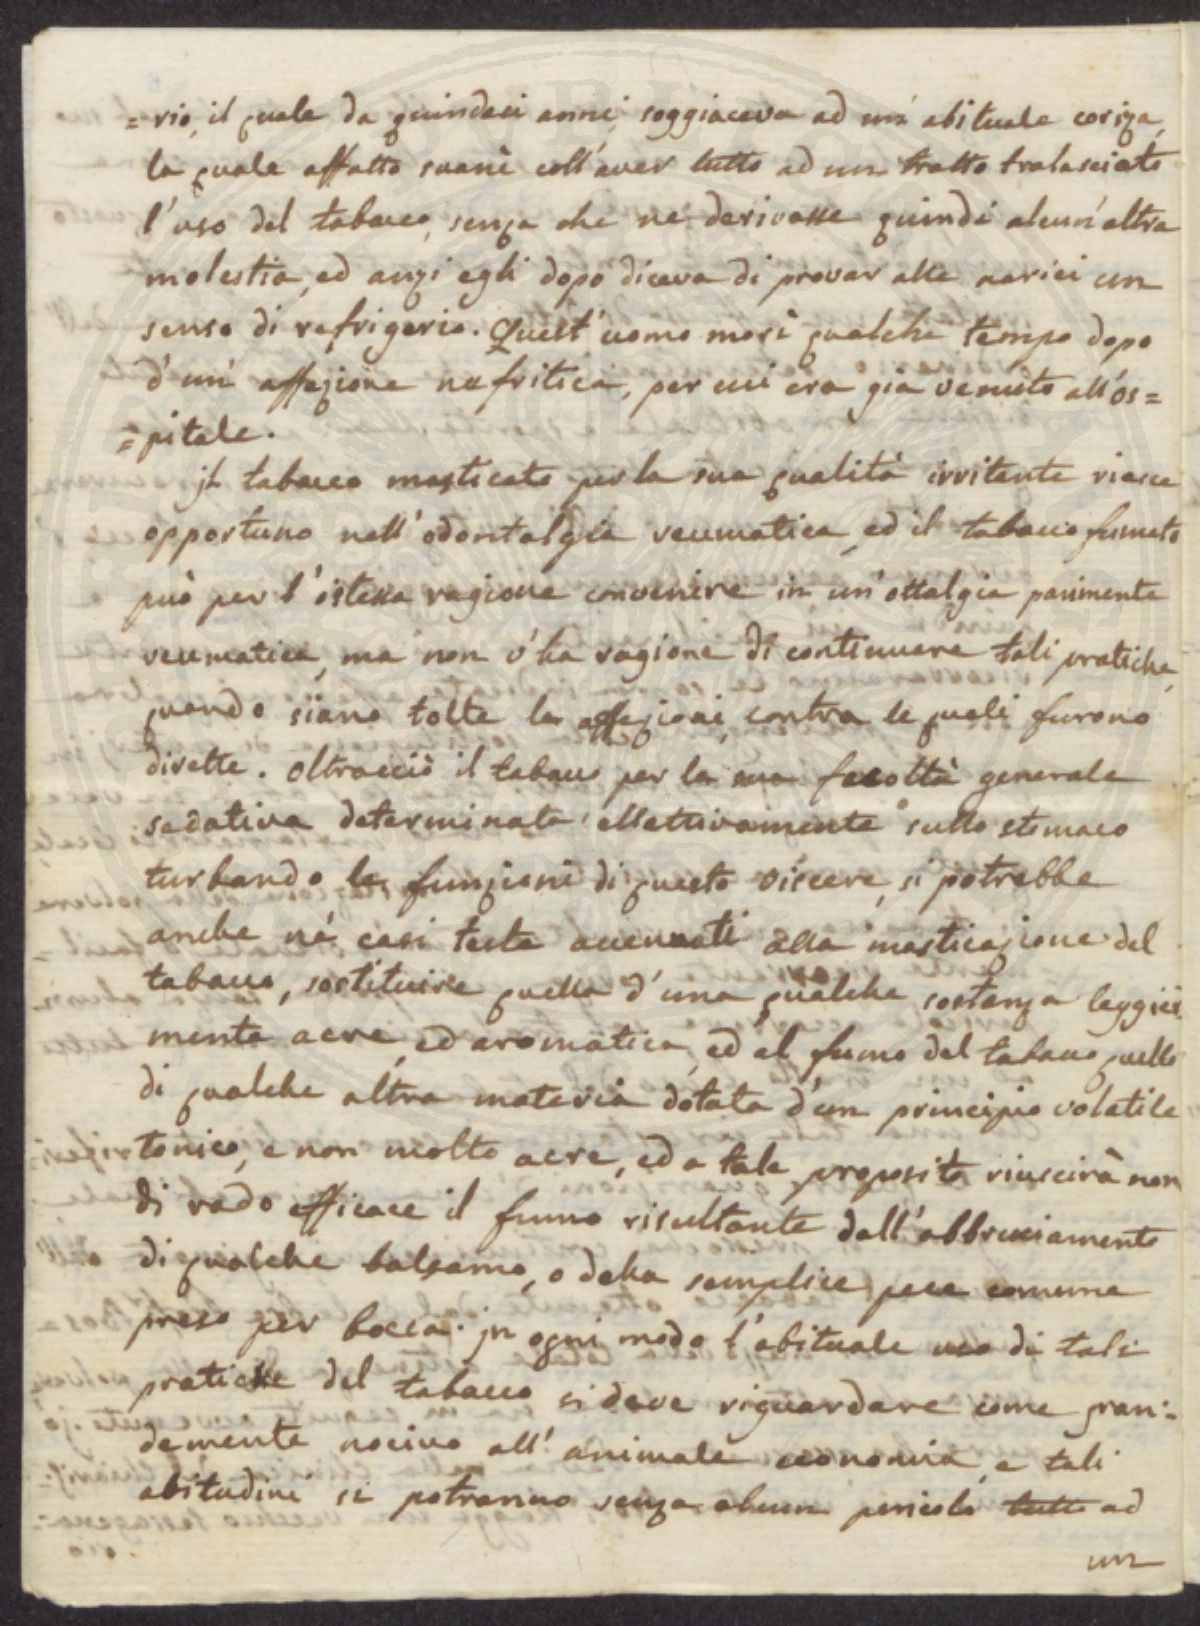 =rio, il quale da quindeci anni, soggiaceva ad un' abituale coriza,
la quale affatto svanì coll'aver tutto ad un tratto tralasciato
l'uso del tabacco, senza che ne derivasse quindi alcun'altra
molestia, ed anzi egli dopo diceva di provar alle narici un
senso di refrigerio. Quest'uomo morì qualche tempo dopo
d'un' affezione nefritica, per cui era già venuto all'os=
=pitale.
Jl tabacco masticato per la sua qualità irritante riesce
opportuno nell'odontalgia reumatica, ed il tabacco fumato
può per l'istessa ragione convenire in un'ottalgia parimente
reumatica, ma non v'ha ragione di continuare tali pratiche,
quando siano tolte le affezioni, contra le quali furono
dirette. Oltracciò il tabacco per la sua facoltà generale
sedativa determinata elettivamente sullo stomaco
turbando le funzioni di questo viscere, si potrebbe
anche ne' casi testè accennati alla masticazione del
tabacco, sostituire quella d'una qualche sostanza leggier
mente acre, ed aromatica, ed al fumo del tabacco quello
di qualche altra materia dotata d'un principio volatile
tonico, e non molto acre, ed a tale proposito riuscirà non
di rado efficace il fumo risultante dall'abbruciamento
di qualche balsamo, o della semplice pece comune
preso per bocca. Jn ogni modo l'abituale uso di tali
pratiche del tabacco si deve riguardare come gran=
demente nocivo all' animale economia, e tali
abitudini si potranno senza alcun pericolo tutto ad
un